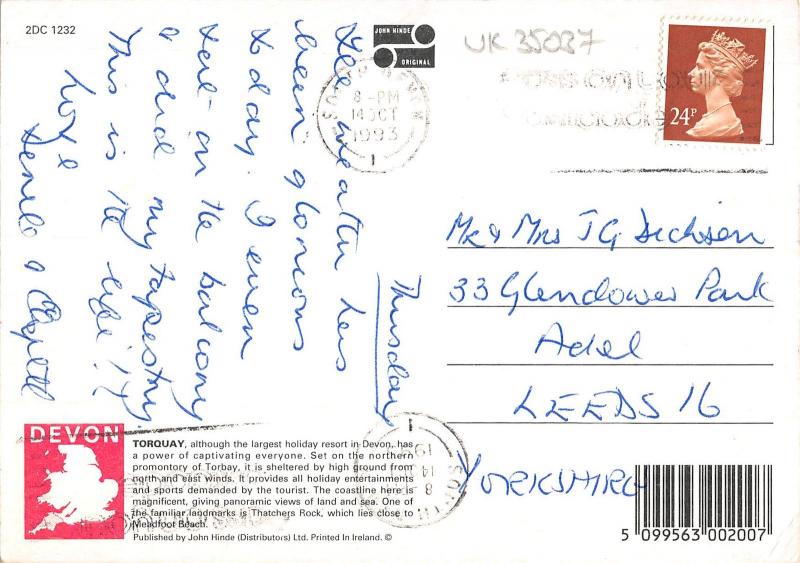 2DC 1232
JOHN HINDE
ORIGINAL
UK 35037
SOUTH DEVON
8-PM
14 OCT
1993
1
24P
Thursday
The weather has
been glorious
today. I even
sat on the balcony
& did my tapestry
This is the life!!
Love
& 
Mr & Mrs J G Dickson
33 Glendower Park
Adel
LEEDS 16
YORKSHIRE
DEVON
TORQUAY, although the largest holiday resort in Devon, has
a power of captivating everyone. Set on the northern
promontory of Torbay, it is sheltered by high ground from
north and east winds. It provides all holiday entertainments
and sports demanded by the tourist. The coastline here is
magnificent, giving panoramic views of land and sea. One of
the familiar landmarks is Thatchers Rock, which lies close to
Meadfoot Beach.
Published by John Hinde (Distributors) Ltd. Printed In Ireland. ©
5 099563 002007